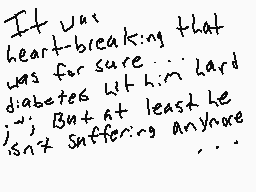 It was
heart-breaking that
was for sure...
diabetes hit him hard
;-; But at least he
isn't suffering anymore
...